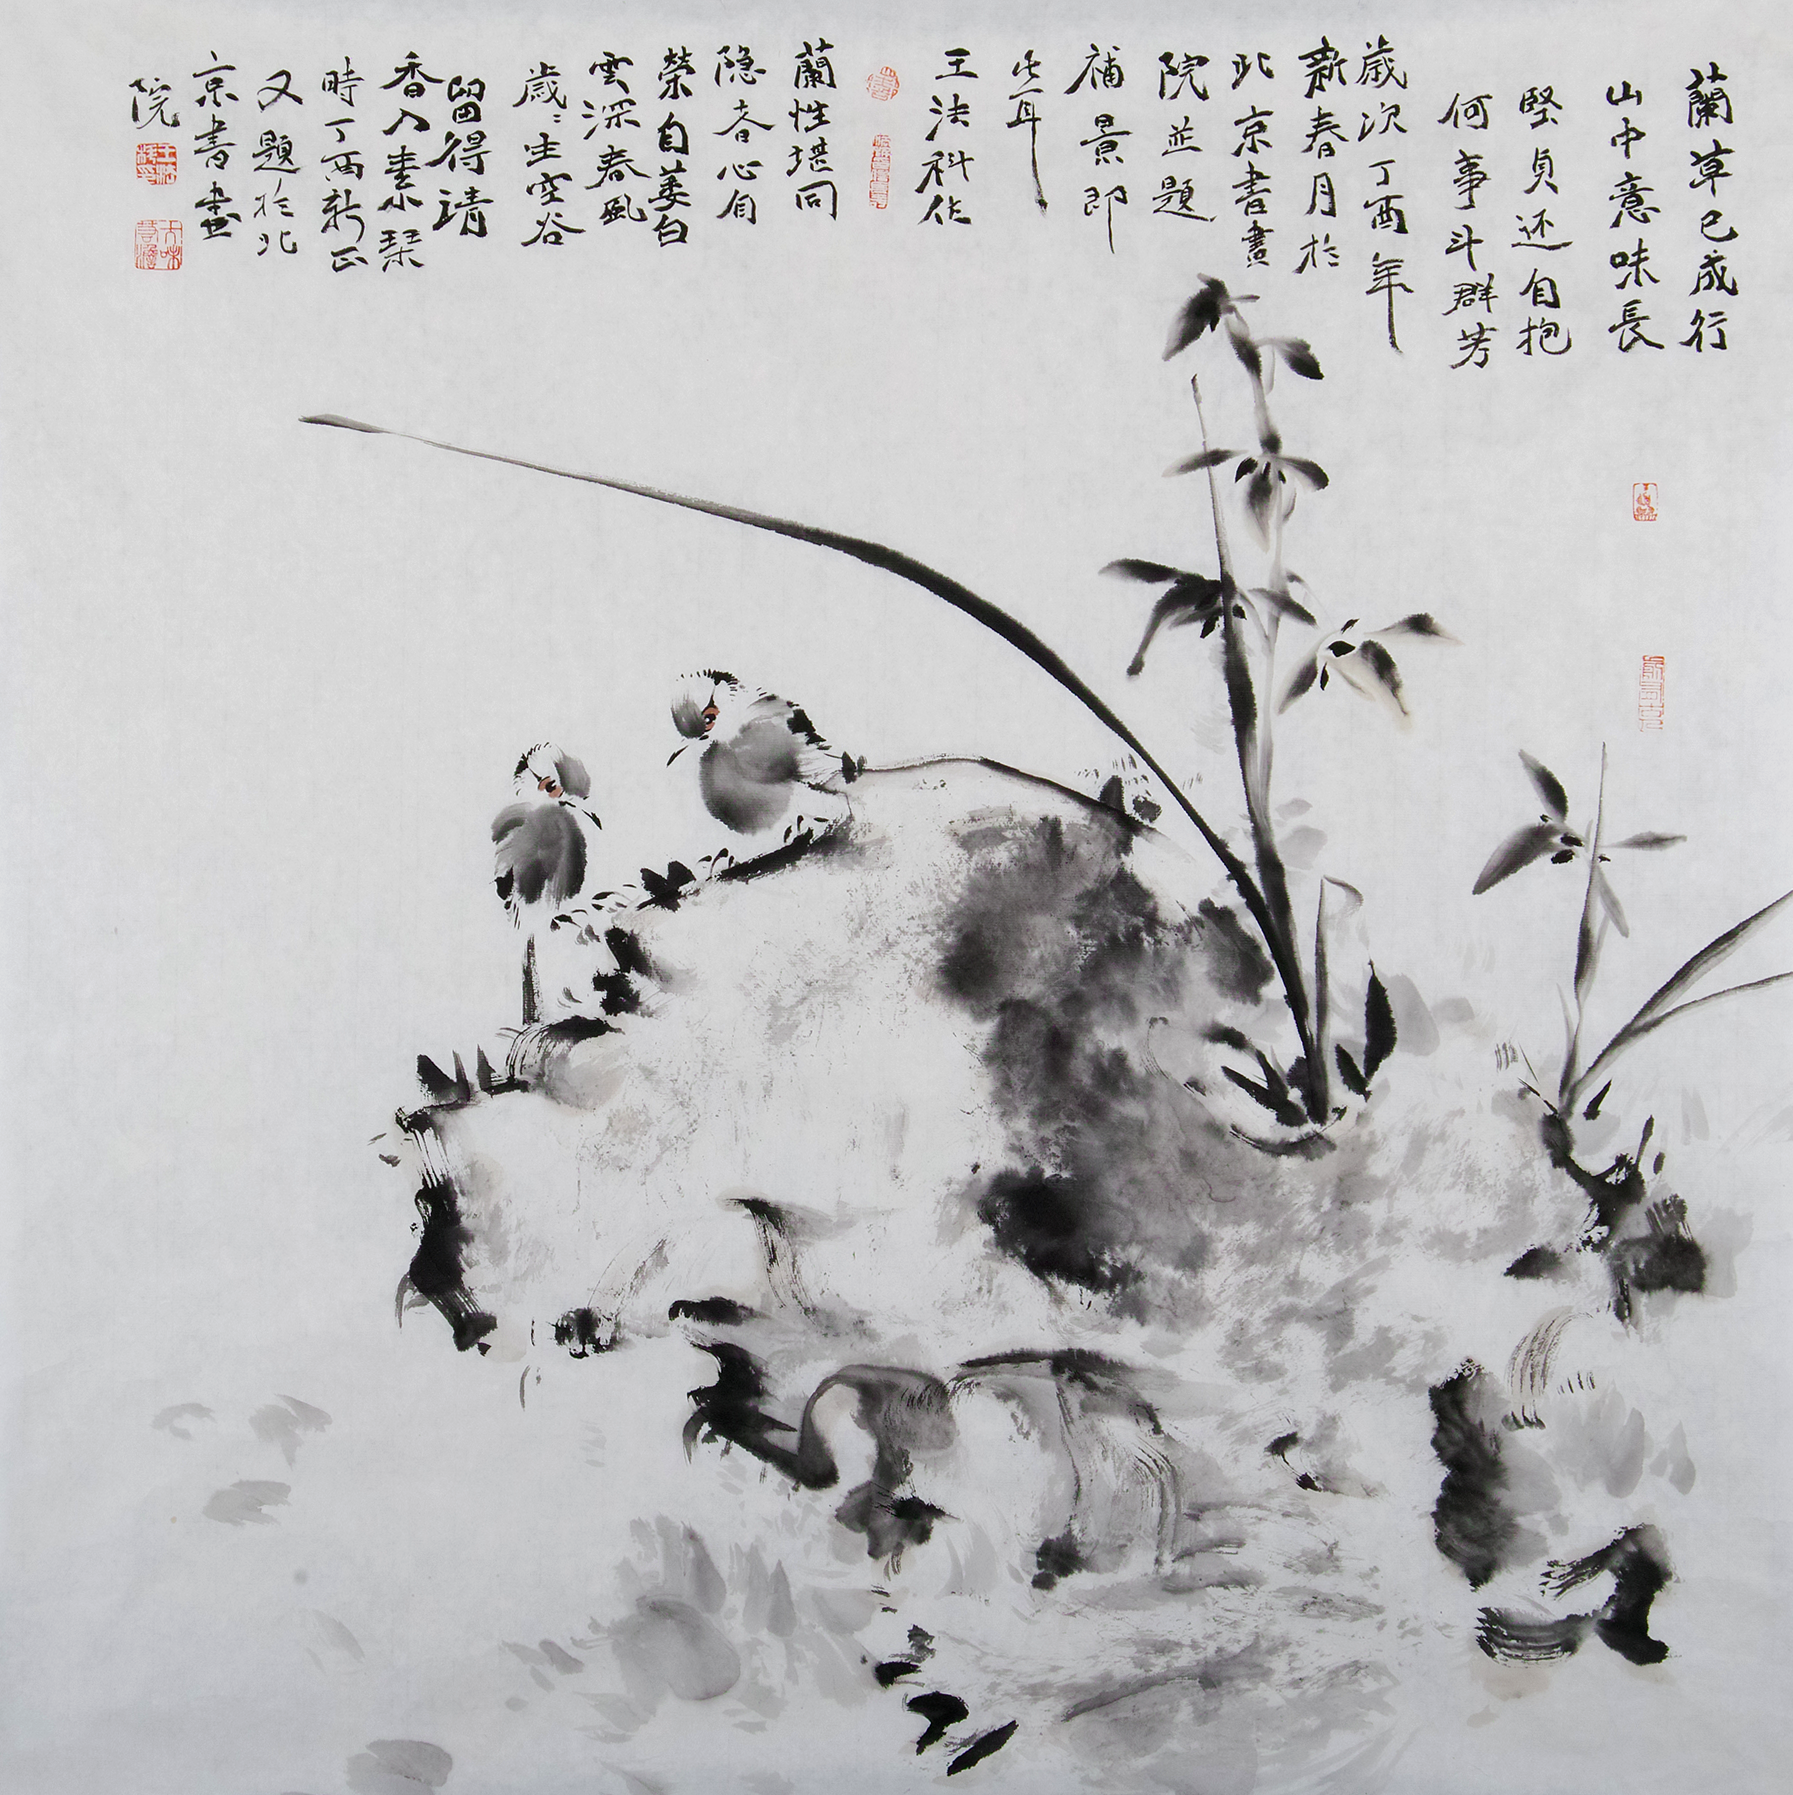 蘭草已成行
山中意味長
堅貞还自抱
何事斗群芳
歲次丁酉年
新春月於
北京書畫
院並題
補景即
此耳
王法科作
蘭性堪同
隐者心自
榮自萎白
雲深春風
歲〻生空谷
留得清
香入素琴
時丁酉新正
又題於北
京書畫
院